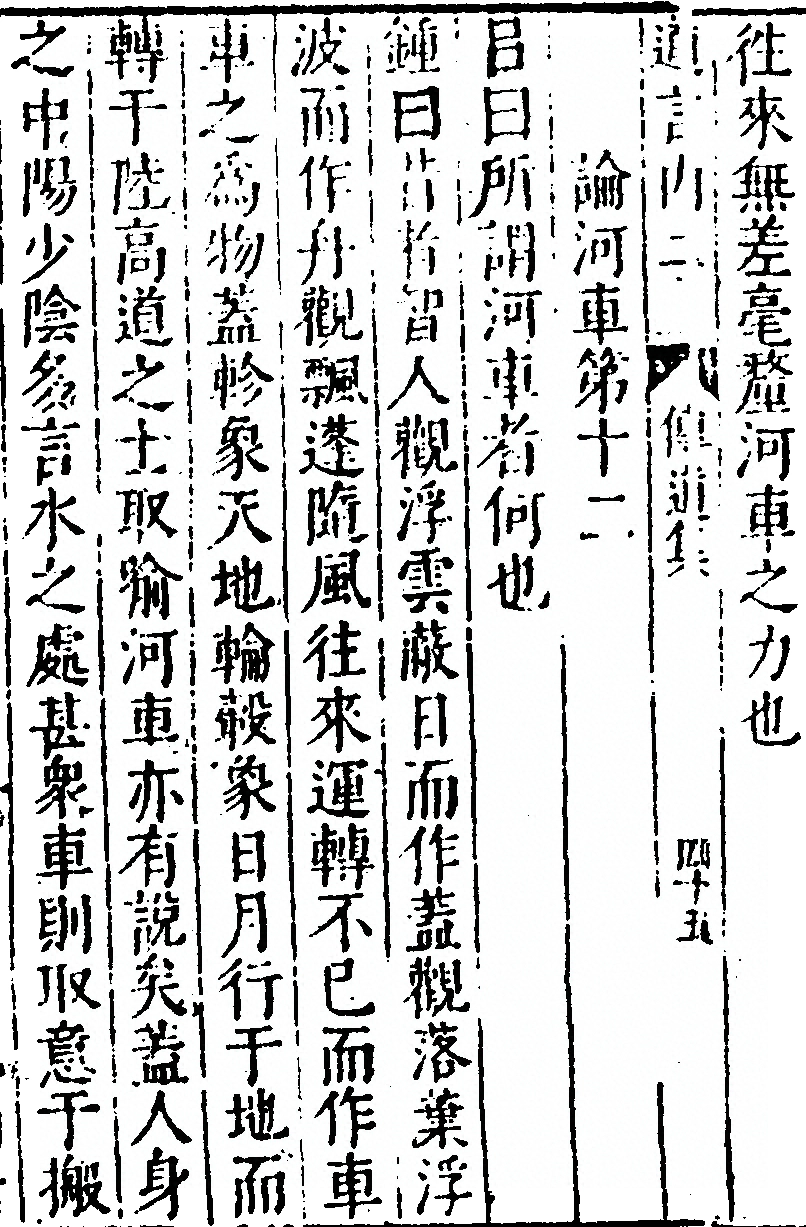 徃來無差毫釐河車之力也
道言内二 傳道集 四十五
論河車第十二
吕曰所謂河車者何也
鍾曰昔者智人觀浮雲蔽日而作蓋觀落葉浮
波而作舟觀飄蓬隨風往來運轉不已而作車
車之爲物蓋軫象天地輪轂象日月行于地而
轉于陸高道之士取喻河車亦有說矣蓋人身
之中陽少陰多言水之處甚衆車則取意于搬